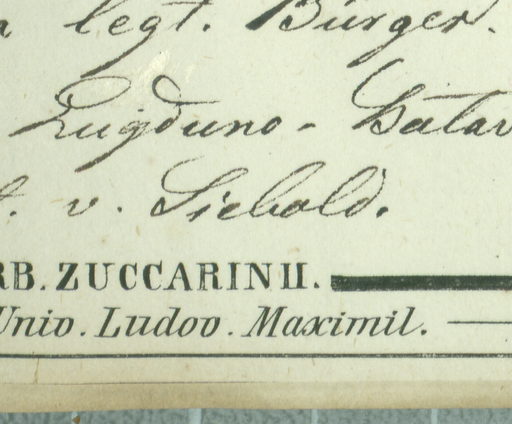 legt. Bürger.
Lugduno-Batav
t. v. Siebold.
RB. ZUCCARINII.
Univ. Ludov. Maximil.